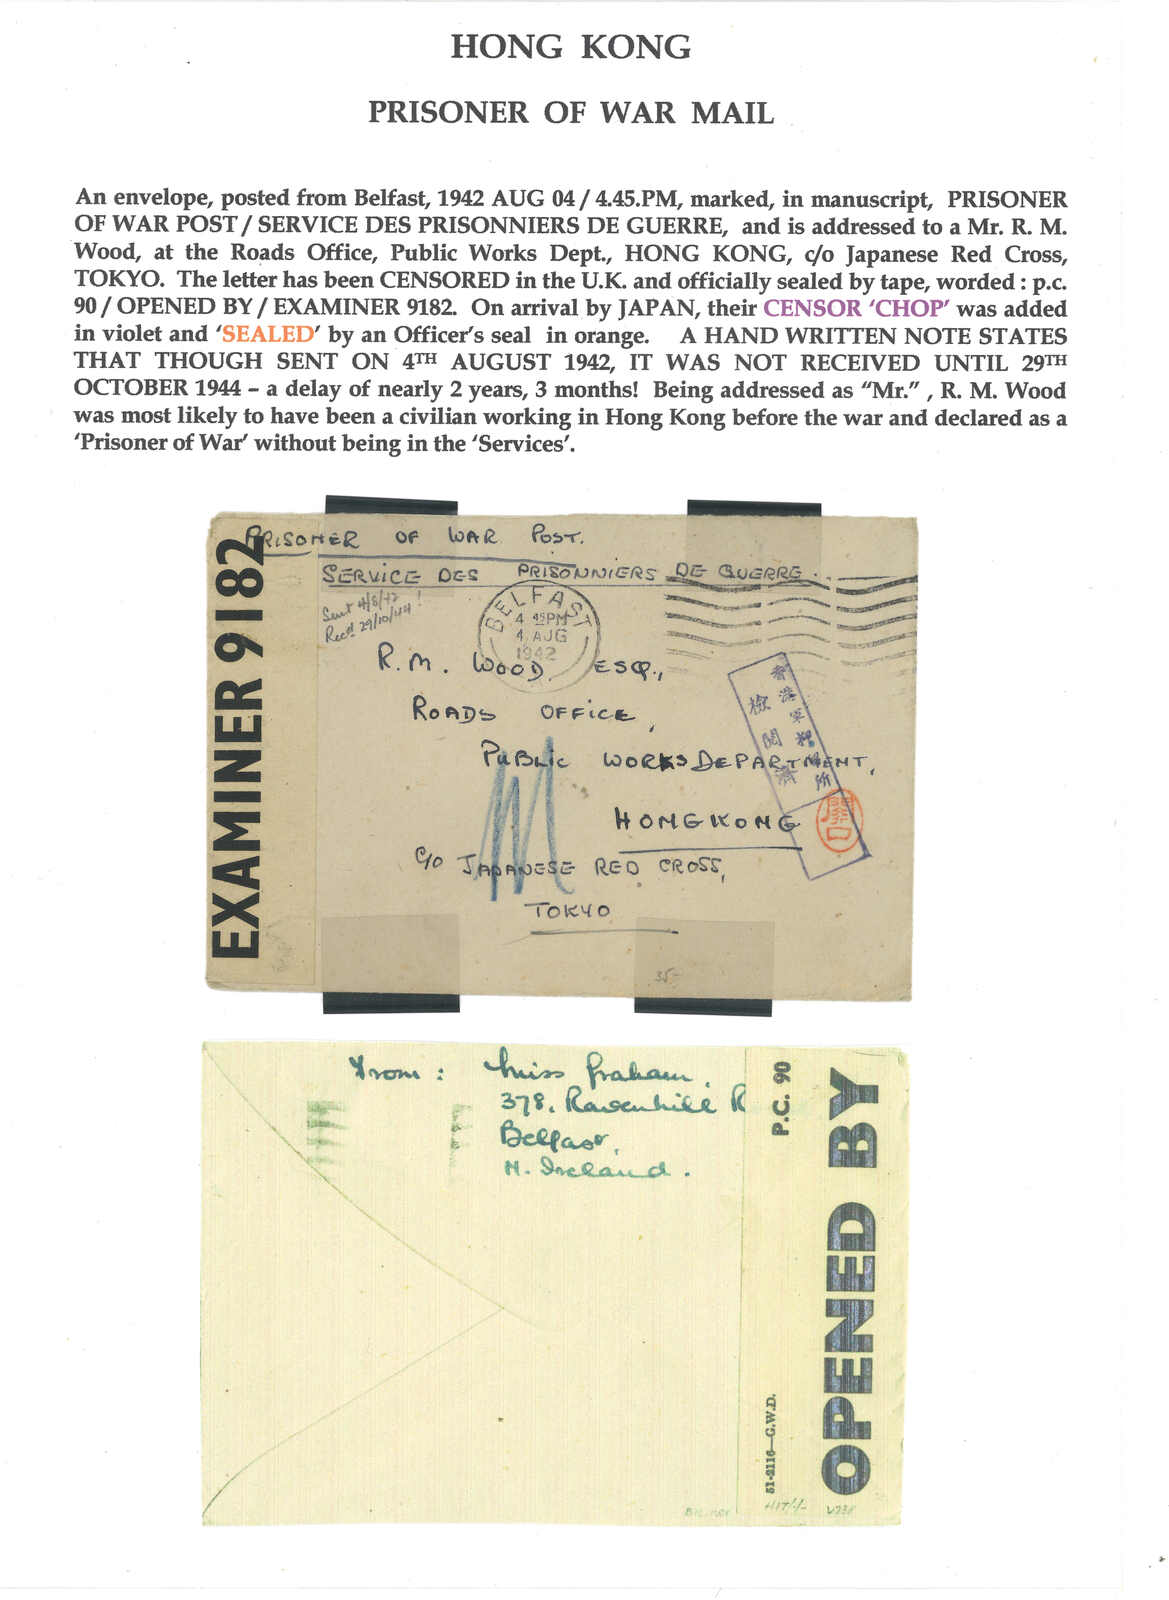 HONG KONG
PRISONER OF WAR MAIL
An envelope, posted from Belfast, 1942 AUG 04 / 4.45.PM, marked, in manuscript, PRISONER
OF WAR POST / SERVICE DES PRISONNIERS DE GUERRE, and is addressed to a Mr. R. M.
Wood, at the Roads Office, Public Works Dept., HONG KONG, c/o Japanese Red Cross,
TOKYO. The letter has been CENSORED in the U.K. and officially sealed by tape, worded : p.c.
90 / OPENED BY / EXAMINER 9182. On arrival by JAPAN, their CENSOR 'CHOP' was added
in violet and 'SEALED' by an Officer's seal in orange. A HAND WRITTEN NOTE STATES
THAT THOUGH SENT ON 4TH AUGUST 1942, IT WAS NOT RECEIVED UNTIL 29TH
OCTOBER 1944 – a delay of nearly 2 years, 3 months! Being addressed as "Mr." , R. M. Wood
was most likely to have been a civilian working in Hong Kong before the war and declared as a
'Prisoner of War' without being in the 'Services'.
PRISONER OF WAR POST.
SERVICE DES PRISONNIERS DE GUERRE.
Sent 4/8/42 !
Recd 29/10/44
BELFAST
4 45PM
4 AUG
1942
R.M. WOOD ESQ.,
ROADS OFFICE,
PUBLIC WORKS DEPARTMENT,
HONGKONG
C/O JAPANESE RED CROSS,
TOKYO
EXAMINER 9182
香港軍 所
檢閲濟
35-
From : Miss Graham.
378, Ravenhill R
Belfast,
N. Ireland.
P.C. 90
OPENED BY
51-2116—G.W.D.